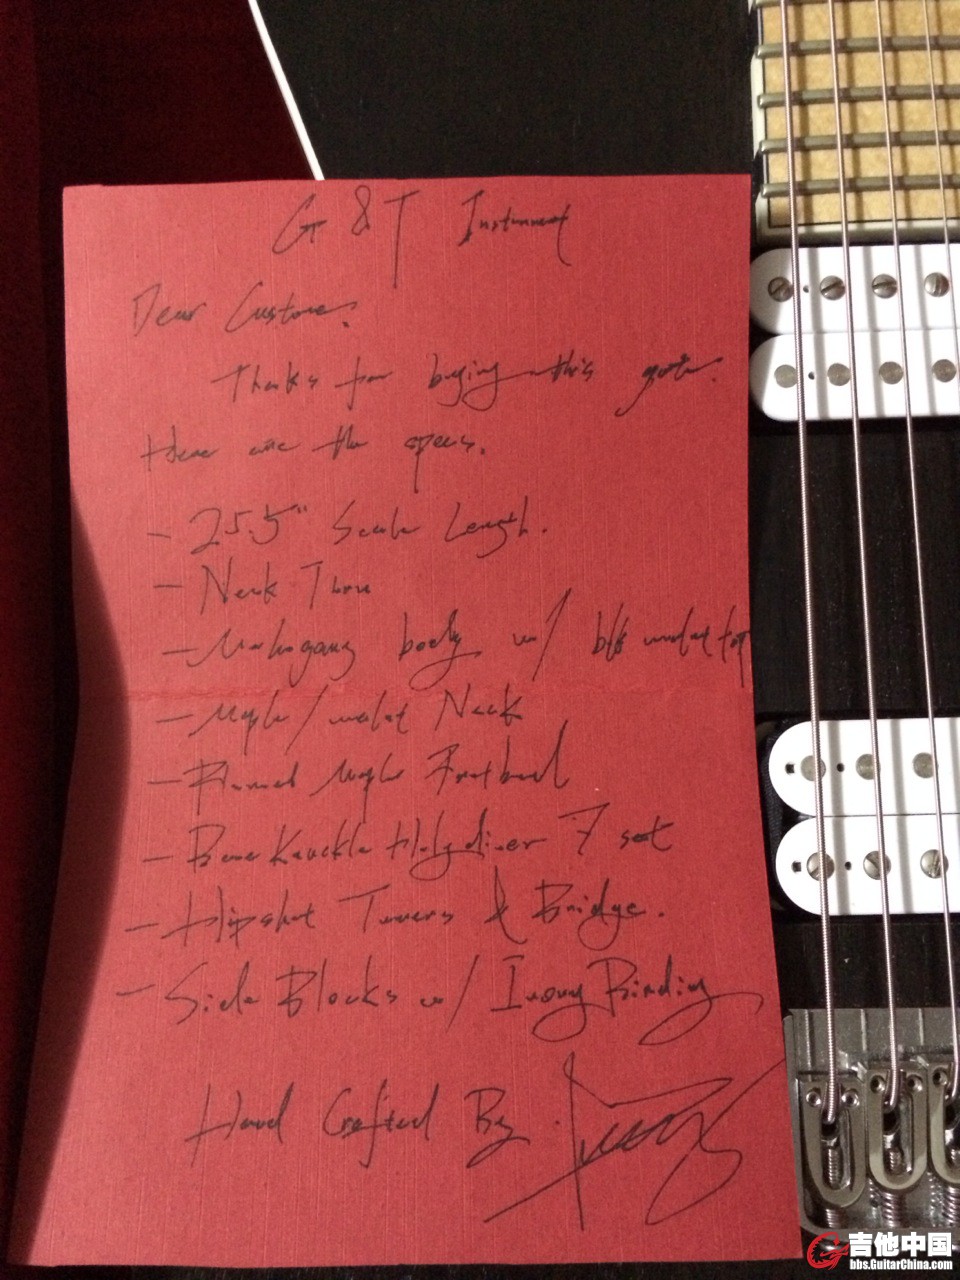 G & T Instrument
Dear Customer,
Thanks for buying this guitar.
Here are the specs.
- 25.5" Scale Length.
- Neck Thru
- Mahogany body w/ blk walnut top
- Maple/walnut Neck
- Flamed Maple Fretboard
- Bare Knuckle Holydiver 7 set
- Hipshot Tuners & Bridge.
- Side Blocks w/ Ivory Binding
Hand Crafted By
吉他中国
bbs.GuitarChina.com